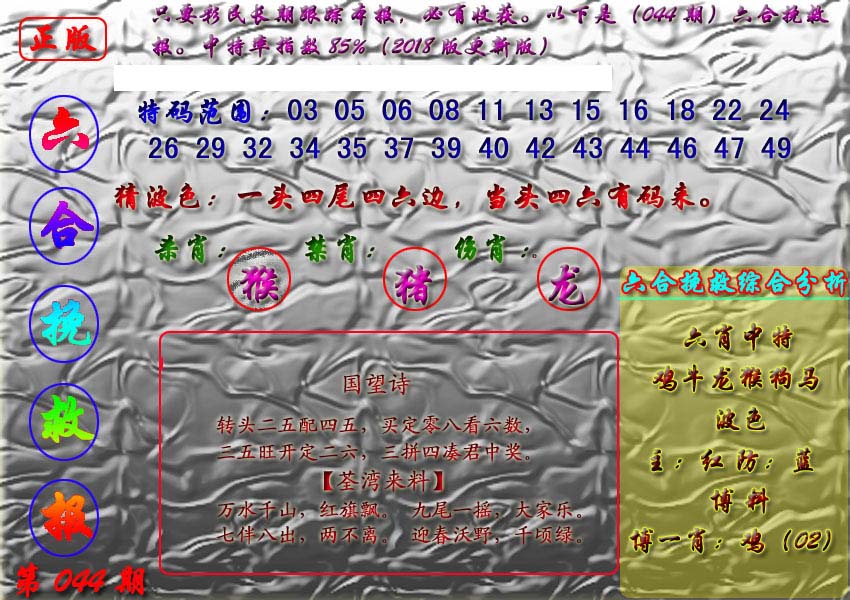 正版
只要彩民长期跟踪本报，必有收获。以下是（044期）六合挽救
报。中特率指数85%（2018版更新版）
六合挽救报
第044期
特码范围：03 05 06 08 11 13 15 16 18 22 24
26 29 32 34 35 37 39 40 42 43 44 46 47 49
猜波色：一头四尾四六边，当头四六有码来。
杀肖：猴 禁肖：猪 伤肖：龙。
国望诗
转头二五配四五，买定零八看六数，
三五旺开定二六，三拼四凑君中奖。
【荃湾来料】
万水千山，红旗飘。 九尾一摇，大家乐。
七伴八出，两不离。 迎春沃野，千顷绿。
六合挽救综合分析
六肖中特
鸡牛龙猴狗马
波色
主：红防：蓝
博料
博一肖：鸡（02）